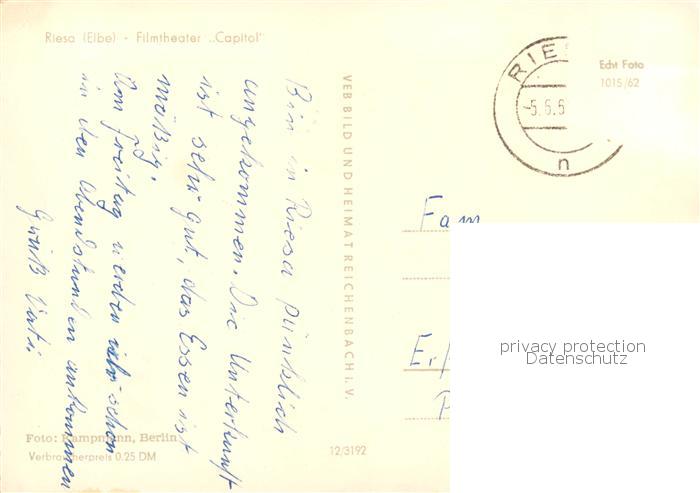 Riesa (Elbe) - Filmtheater „Capitol"
Bin in Riesa pünktlich
angekommen. Die Unterkunft
ist sehr gut, das Essen ist
mäßig.
Am Freitag werden schon
in den Abendstunden ankommen
Gruß Vati.
VEB BILD UND HEIMAT REICHENBACH I. V.
RIES
-5.6.6
n
Echt Foto
1015/62
Fam
Erf
privacy protection
Datenschutz
Foto: Kampmann, Berlin
Verbraucherpreis 0.25 DM
12/3192